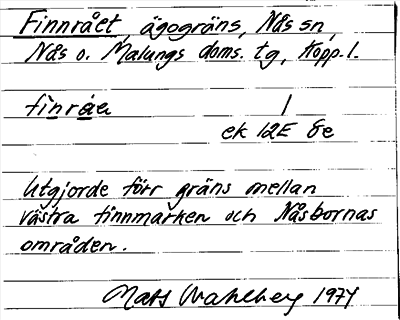 Finnrået, ägogräns, Nås sn,
Nås o. Malungs doms. tg, Kopp. l.
finråe /
ek 12E 8e
Utgjorde förr gräns mellan
västra finnmarken och Nåsbornas
områden.
Mats Wahlberg 1974